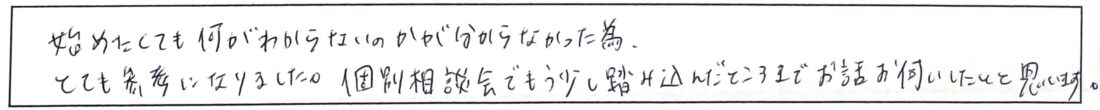 始めたくても何がわからないのかが分からなかった為、
とても参考になりました。個別相談会でもう少し踏み込んだところまでお話お伺いしたいと思います。